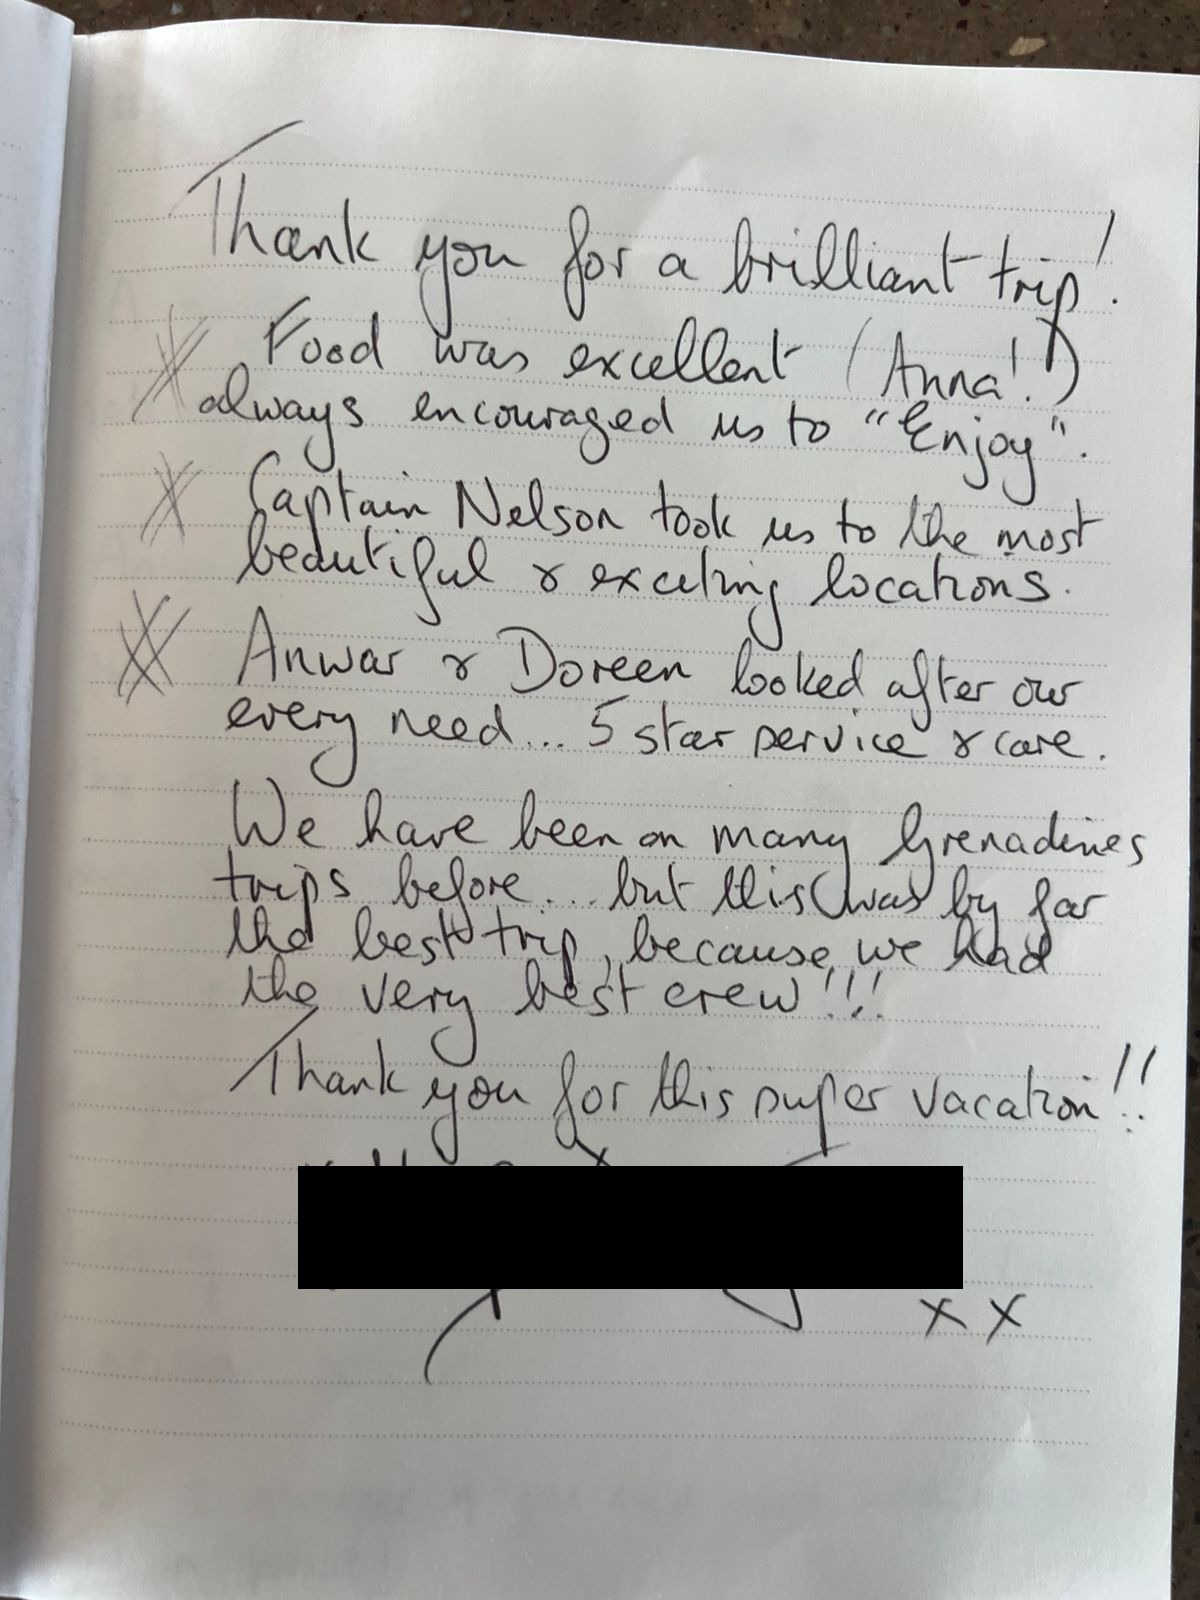 Thank you for a brilliant trip!
Food was excellent (Anna!)
always encouraged us to "Enjoy".
Captain Nelson took us to the most
beautiful & exciting locations.
Anwar & Doreen looked after our
every need... 5 star service & care.
We have been on many Grenadines
trips before... but this was by far
the best trip, because we had
the very best crew!!!
Thank you for this super vacation!!
x x